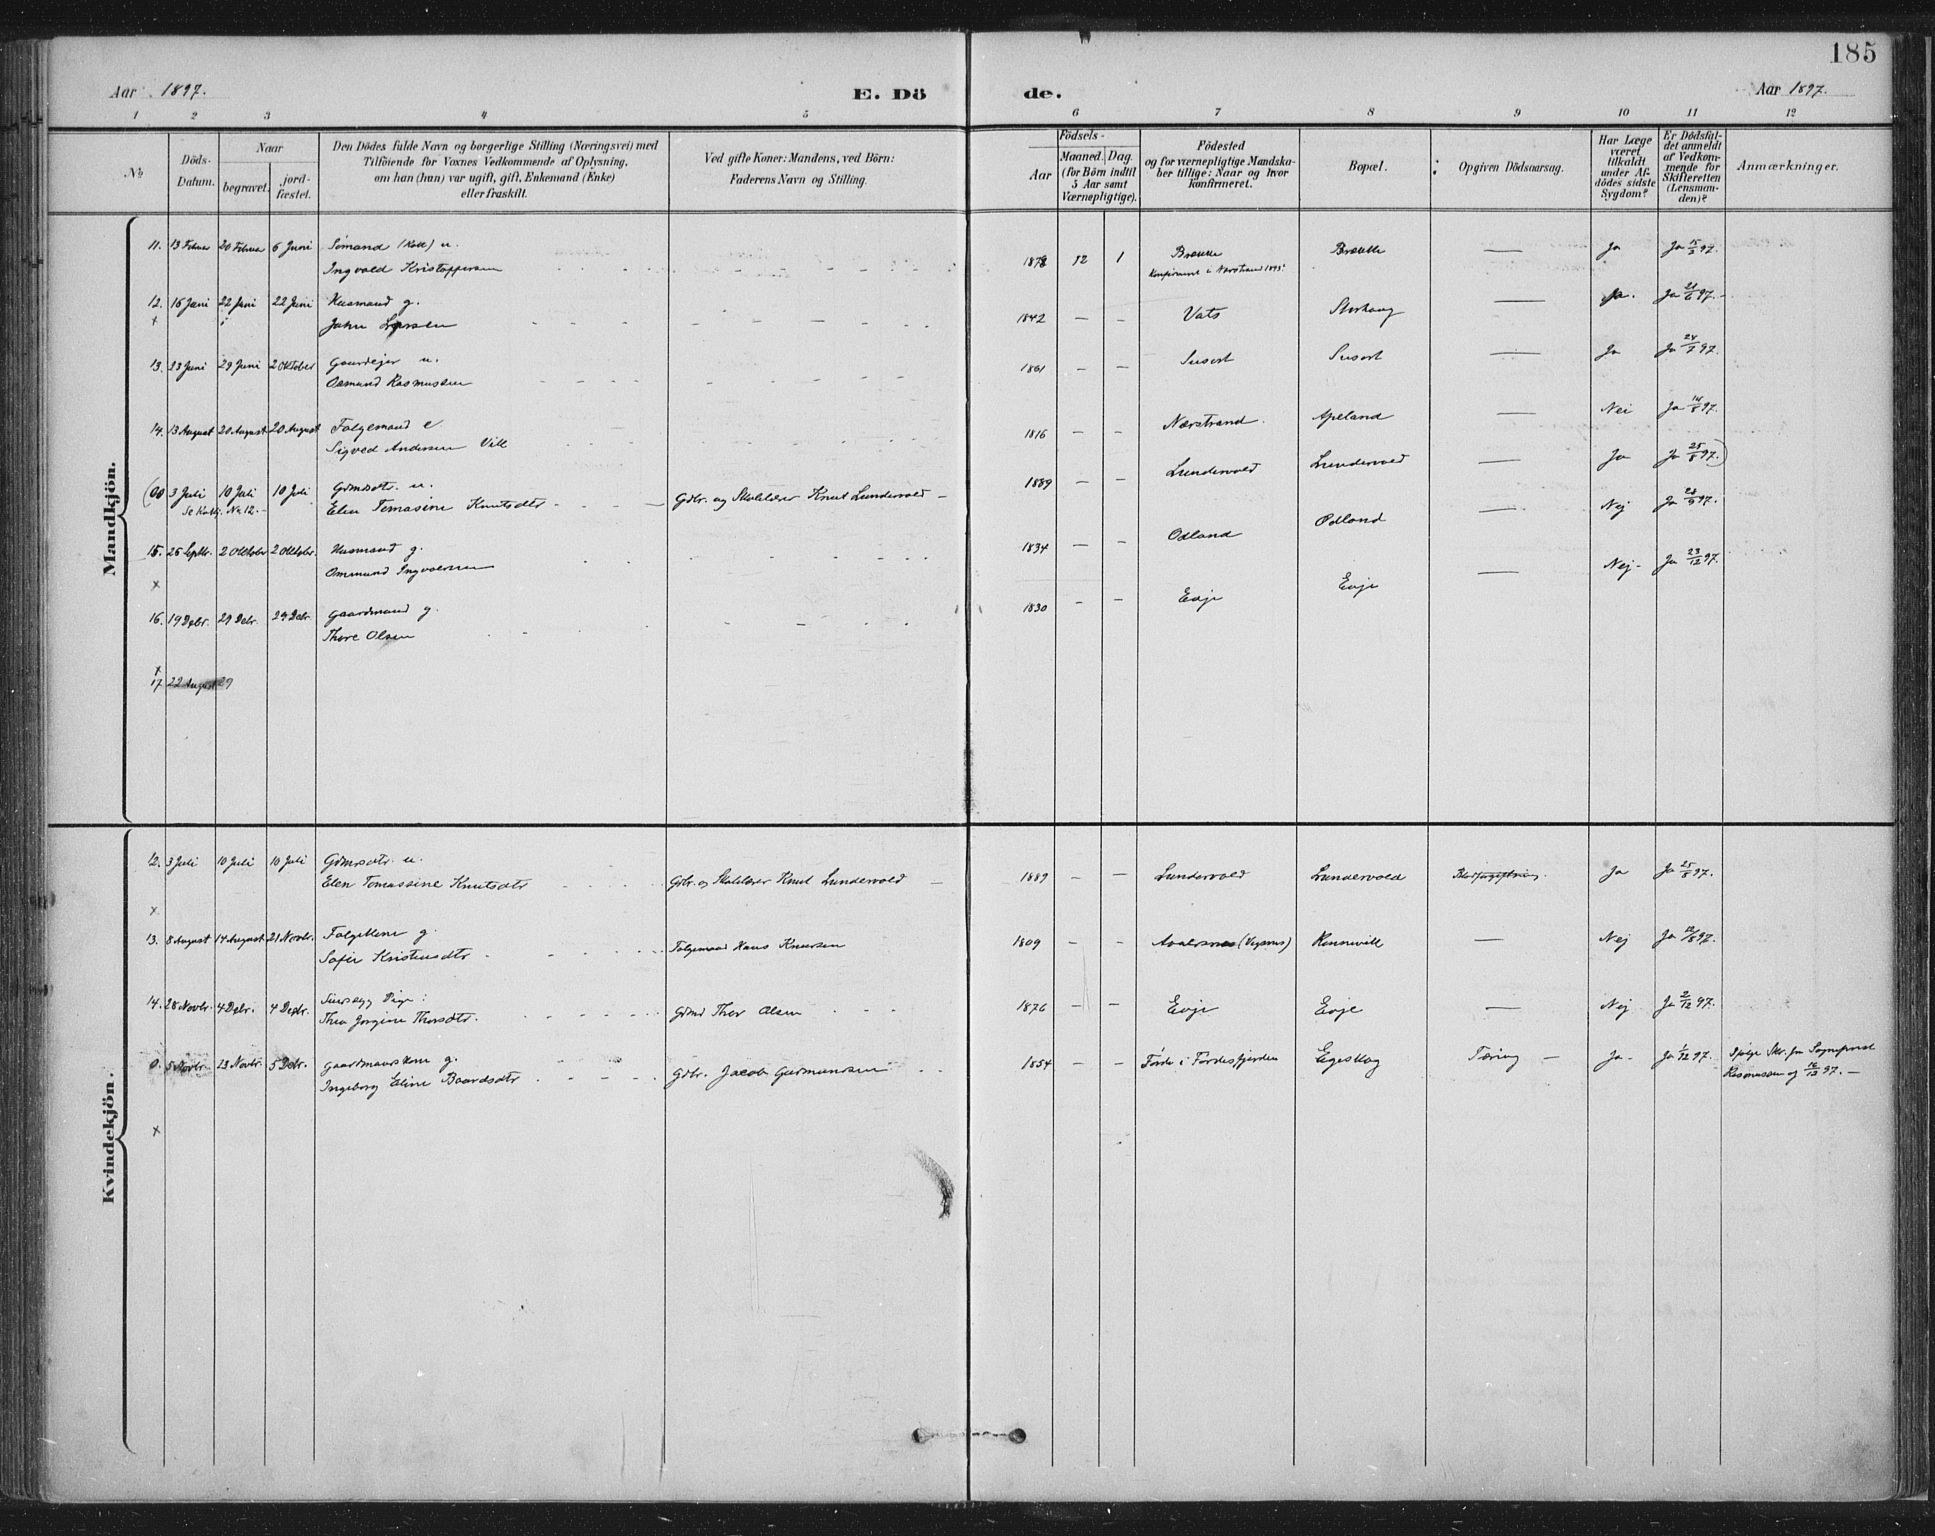 185
Aar 1897.
E. Dö
de.
Aar 1897.
1 2 3 4 5 6 7 8 9 10 11 12
No
Döds-Datum.
Naar
begravet.
jord-fæstet.
Den Dödes fulde Navn og borgerlige Stilling (Næringsvei) med
Tilföiende for Voxnes Vedkommende af Oplysning,
om han (hun) var ugift, gift, Enkemand (Enke)
eller fraskilt.
Ved gifte Koner: Mandens, ved Börn:
Faderens Navn og Stilling.
Födsels-
Aar
Maaned. Dag.
(for Börn indtil
5 Aar samt
Værnepligtige).
Födested
og for værnepligtige Mandska-
ber tillige: Naar og hvor
konfirmeret.
Bopæl.
Opgiven Dödsaarsag.
Har Læge
været
tilkaldt
under Af-
dödes sidste
Sygdom?
Er Dödsfal-
det anmeldt
af Vedkom-
mende for
Skifteretten
(Lensman-
den)?
Anmærkninger.
Mandkjön.
11. 13 Februar 20 Februar 6 Juni Sømand u. Brække Ja Ja 97.
Ingvald Kristoffersen 1878 12 1 Brække
Konfirmeret i Nærstrand 1893
12. 16 Juni 22 Juni 22 Juni Husmand g. Ja. Ja 21/6 97.
x John Larsen 1842 — — Vats Storhaug —
13. 23 Juni 29 Juni 2 Oktober Gaardejer u. Susort Susort — Ja Ja 24/7 97.
Osmund Rasmussen 1861 — —
14. 13 August 20 August 20 August Folgemand e Nærstrand. Apeland — Nei Ja 14/8 97.
Sigved Andersen Vill 1816 — —
(00 3 Juli 10 Juli 10 Juli Gdmdtr. u. Lundervold Lundervold — Ja Ja 25/8 97.)
Se Kvkj. No 12. Elen Tomasine Knutsdtr Gdbr. og Skolelærer Knut Lundervold — 1889 — —
15. 25 Septbr. 2 Oktober 2 Oktober. Husmand g. 1834 — — Odland Odland — Nej Ja 28/9 97.
x Ommund Ingvaldsen
16. 19 Debr. 29 Debr. 29 Debr. Gaardmand g. 1830 — — Evje Evje — Nej Ja 23/12 97.
Thore Olsen
x
17 22 August 29
Kvindekjön.
12. 3 Juli 10 Juli 10 Juli Gdmdtr. u.
Elen Tomassine Knutsdtr Gdbr. og Skolelærer Knut Lundervold — 1889 Lundervold Lundervold Blodforgiftning. Ja Ja 25/8 97.
x
13. 8 August 14 August 21 Novbr. Folgekone g.
Sofie Kristensdtr Folgemand Hans Knudsen 1809 — — Avaldsnes (Vigsnes) Rennevill — Nej Ja 12/8 97.
14. 28 Novbr. 4 Debr. 4 Debr. Pige
Thea Jorgine Thorsdtr. Gdmd Thor Olsen 1876 — — Evje Evje — Nej Ja 2/12 97.
0. 5 Novbr. 13 Novbr. 5 Debr. Gaardmandskone g.
Ingeborg Eline Baardsdtr Gdbr. Jacob Gudmundsen 1854 — — Førde i Førdesfjorden Egeskog Tæring — Ja Ja 1/12 97. Ifølge Skr. fra Sogneprest
Rasmussen af 16/12 97.
x